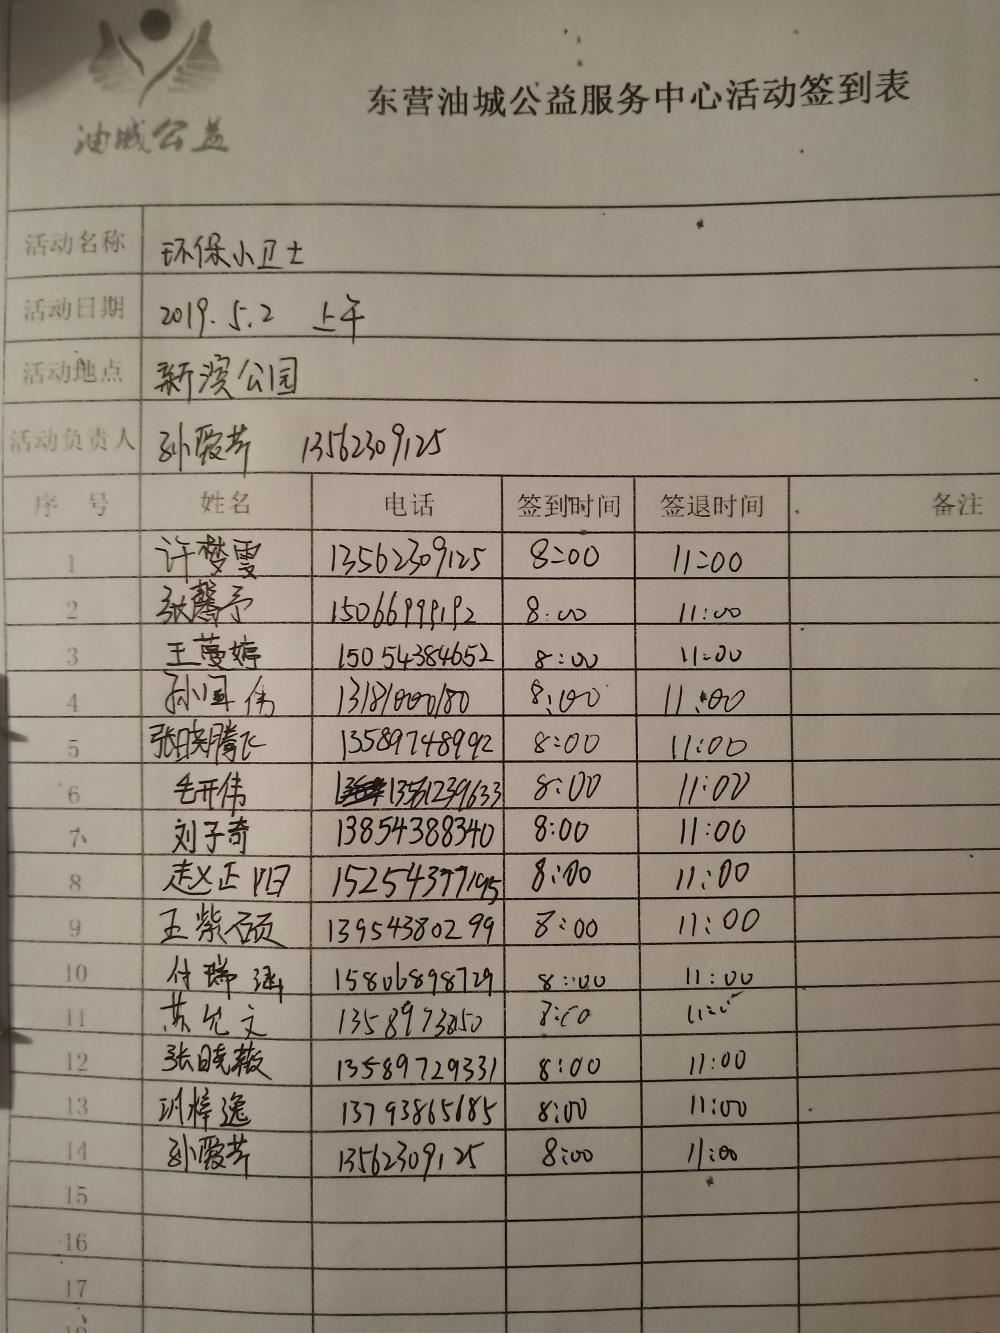 油城公益
东营油城公益服务中心活动签到表
活动名称 环保小卫士
活动日期 2019.5.2 上午
活动地点 新滨公园
活动负责人 孙爱芹 13562309125
序 号 姓名 电话 签到时间 签退时间 备注
1 许梦雯 13562309125 8:00 11:00
2 张馨予 15066999192 8:00 11:00
3 王蔓婷 15054384652 8:00 11:00
4 孙国伟 13181000180 8:00 11:00
5 张晓腾飞 13589748992 8:00 11:00
6 毛开伟 13561239633 8:00 11:00
7 刘子奇 13854388340 8:00 11:00
8 赵正阳 15254377195 8:00 11:00
9 王紫硕 13954380299 8:00 11:00
10 付瑞涵 15806898729 8:00 11:00
11 苏允文 8:00 11:00
12 张晓薇 13589729331 8:00 11:00
13 梓逸 13793865685 8:00 11:00
14 孙爱芹 13562309125 8:00 11:00
15
16
17
18